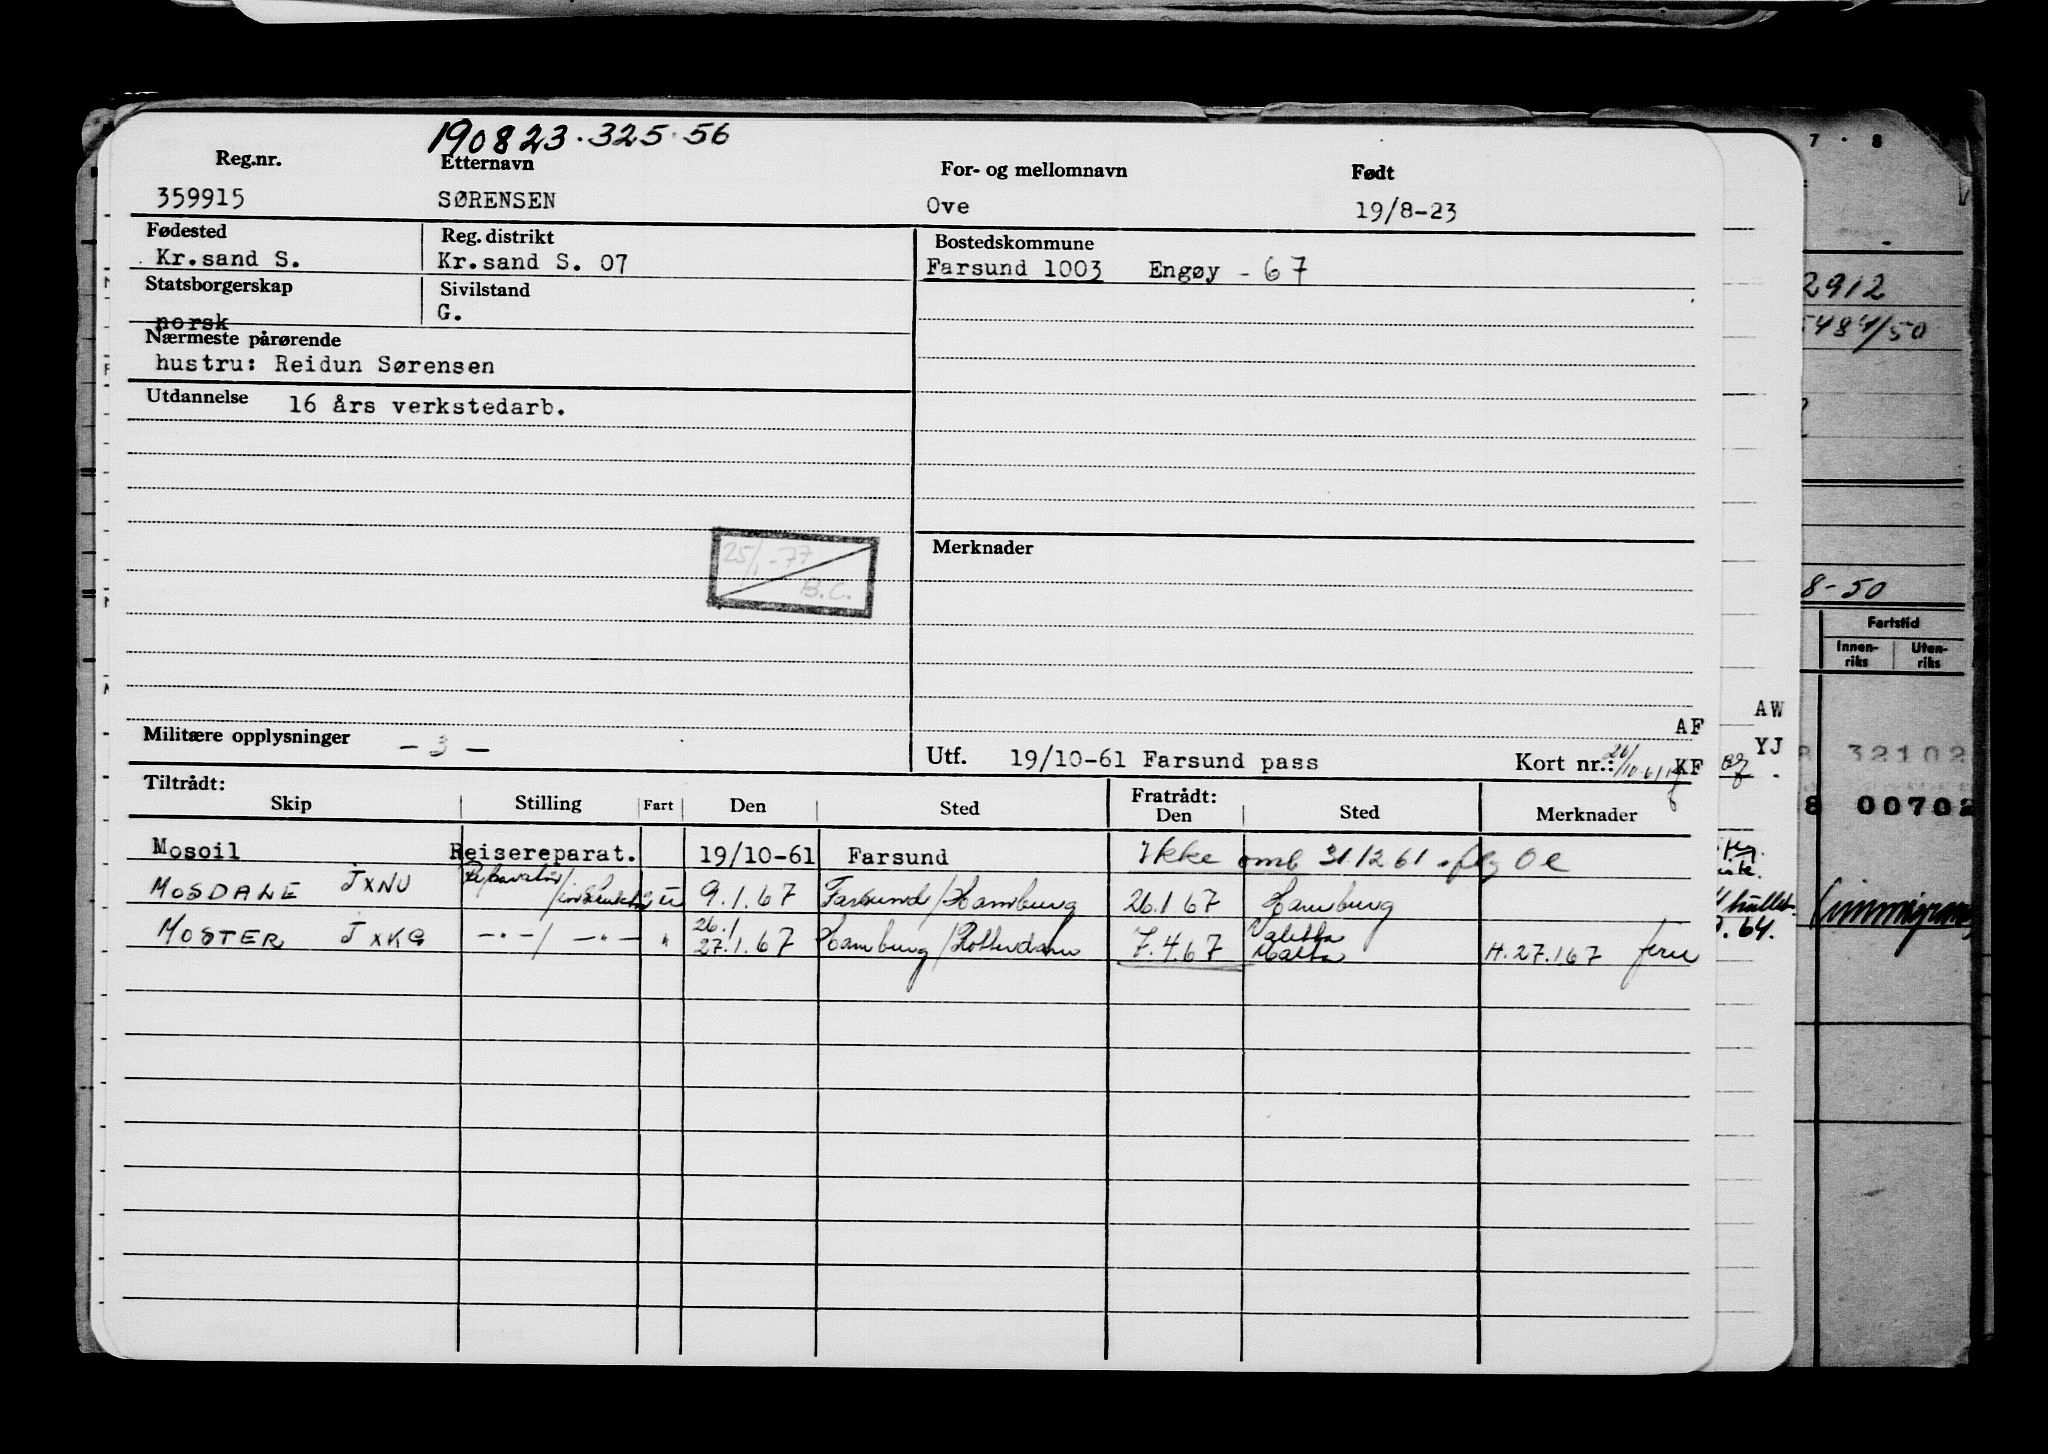 190823.325.56
Reg.nr. Etternavn For- og mellomnavn Født
359915 SØRENSEN Ove 19/8-23
Fødested Reg. distrikt Bostedskommune
Kr.sand S. Kr.sand S. 07 Farsund 1003 Engøy - 67
Statsborgerskap Sivilstand
norsk G.
Nærmeste pårørende
hustru: Reidun Sørensen
Utdannelse 16 års verkstedarb.
25/1-77
B.C.
Merknader
AF
Militære opplysninger - 3 - Utf. 19/10-61 Farsund pass Kort nr.: KF
Tiltrådt: Fratrådt:
Skip Stilling Fart Den Sted Den Sted Merknader
Mosoil Reisereparat. 19/10-61 Farsund Ikke omb 31.12.61
MOSDALE JXNU U 9.1.67 Farsund/Hamburg 26.1 67 Hamburg
MOSTER JXKG -"-/ -"- " 26.1 27.1.67 Hamburg/Rotterdam 7.4.67 Valetta Malta H.27.167
2912
5484/50
8-50
Fartstid
Innen-riks Uten-riks
AW
YJ
32102
8 00702
9.64.
7 . 8